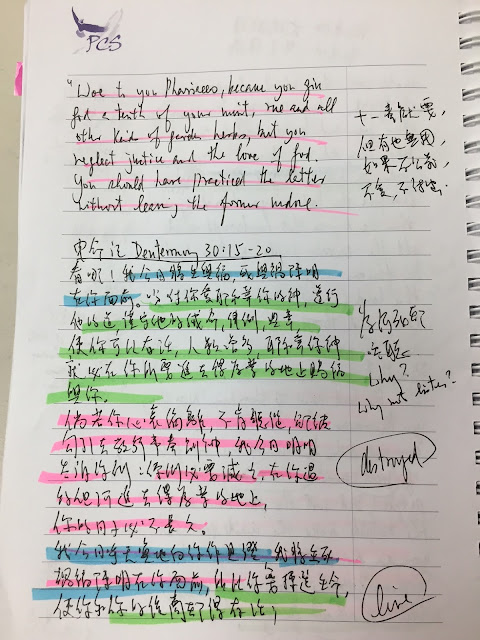 PCS
"Woe to you Pharisees, because you give
God a tenth of your mint, rue and all
other kind of garden herbs, but you
neglect justice and the love of God.
You should have practiced the latter
without leaving the former undone.
十一奉献要,
但有也無用,
如果不公義,
不愛,
申命记 Deuteronomy 30:15-20
看哪!我今日將生與福,死與禍陳明
在你面前。
他的道,謹守他的誡命,律例,典章,
使你可以存活,人數
就必在你所要進去得為業的地上賜福
與你。
倘若你心裏偏離,不肯聽從,
勾引去敬拜事奉別神,我今日明明
告訴你們:你們必要滅亡,在你過
約但河進去得為業的地上,
你的日子必不長久。
why?
why not listen?
destroyed
我今日呼天喚地向你作見證,我將生死
禍福陳明在你面前,你要揀選生命,
使你和你的後裔都得存活;
live